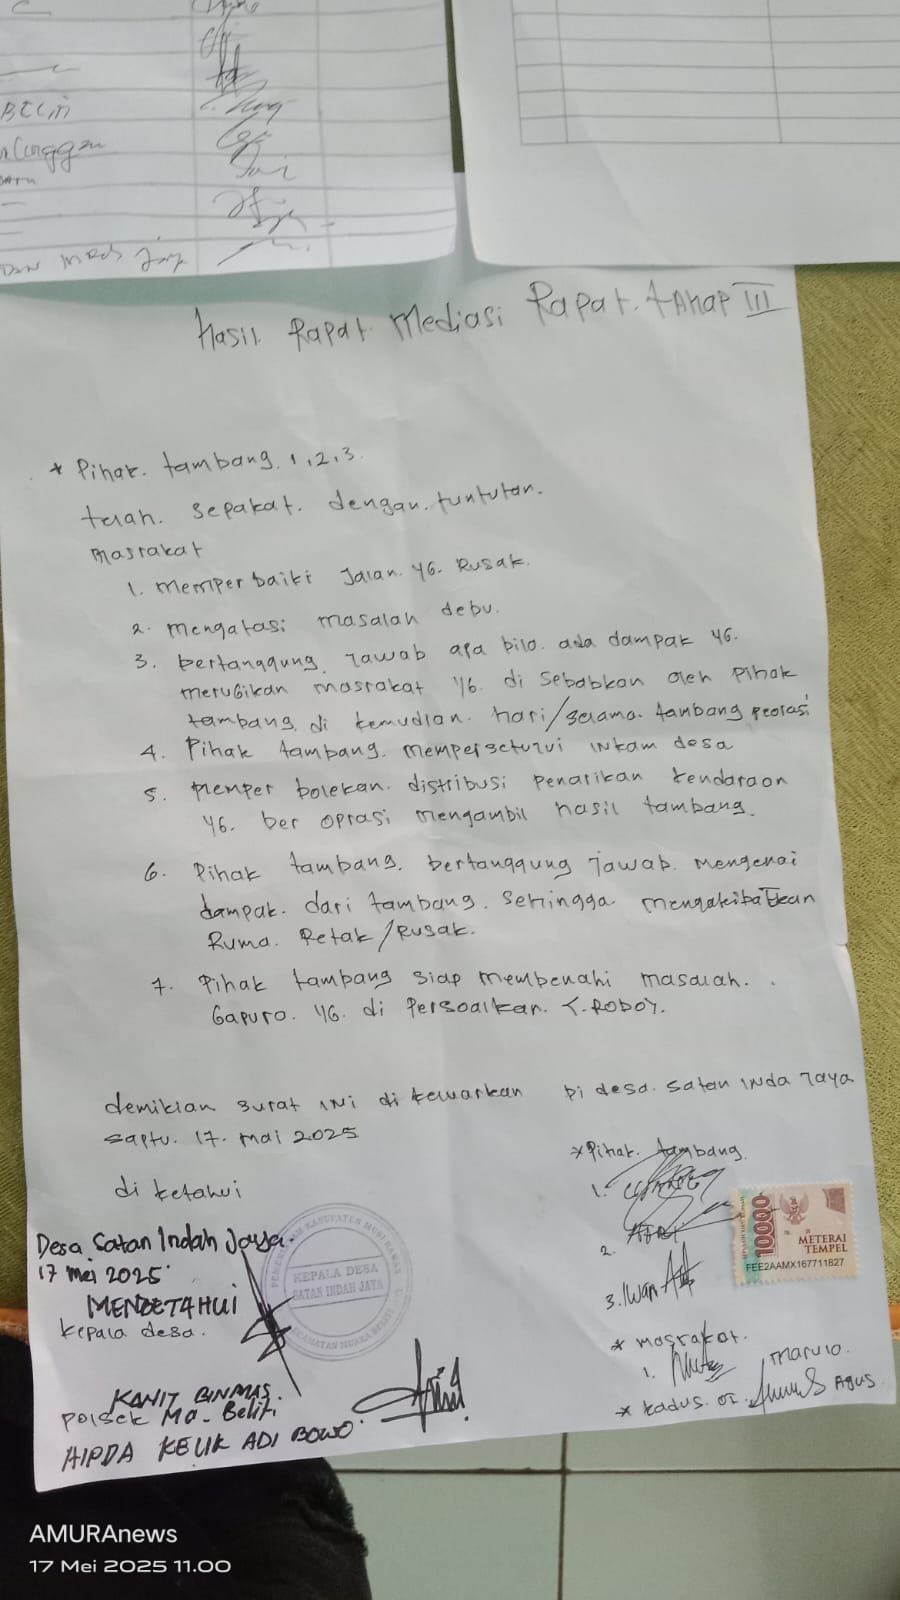 BELITI
Hasil Rapat Mediasi Rapat. tAHap III
* Pihak. tambang. 1,2,3.
telah. sepakat. dengan. tuntutan.
Masrakat
1. memper baiki Jalan. YG. Rusak.
2. mengatasi masalah debu.
3. bertanggung. Jawab apa bila. ada dampak YG.
merugikan masrakat YG. di sebabkan oleh Pihak
tambang di kemudian. hari/selama. tambang peorasi
4. Pihak tambang. mempersetujui inkam desa
5. memper bolekan. distribusi penarikan kendaraan
YG. ber oprasi mengambil hasil tambang.
6. Pihak tambang. bertanggung jawab. mengenai
dampak. dari tambang. sehingga mengakibatkan
Ruma. Retak/Rusak.
7. Pihak tambang siap membenahi masalah.
Gapuro. YG. di Persoalkan. T. ROBOY.
demikian surat ini di kewarkan Di desa. satan inda Jaya
saptu. 17. mai 2025
di ketahui
Desa Satan Indah Jaya.
17 Mei 2025
MENGETAHUI
kepala desa.
PEMERINTAH KABUPATEN MUSI RAWAS
KEPALA DESA
SATAN INDAH JAYA
KECAMATAN MUARA BELITI
KANIT BINMAS.
POLSEK MA. Beliti
AIPDA KELIK ADI BOWO
* Pihak. tambang.
1.
2.
3. Iwan
10000
METERAI
TEMPEL
FEE2AAMX167711827
* masrakat.
1.
* kadus. Agus
AMURAnews
17 Mei 2025 11.00